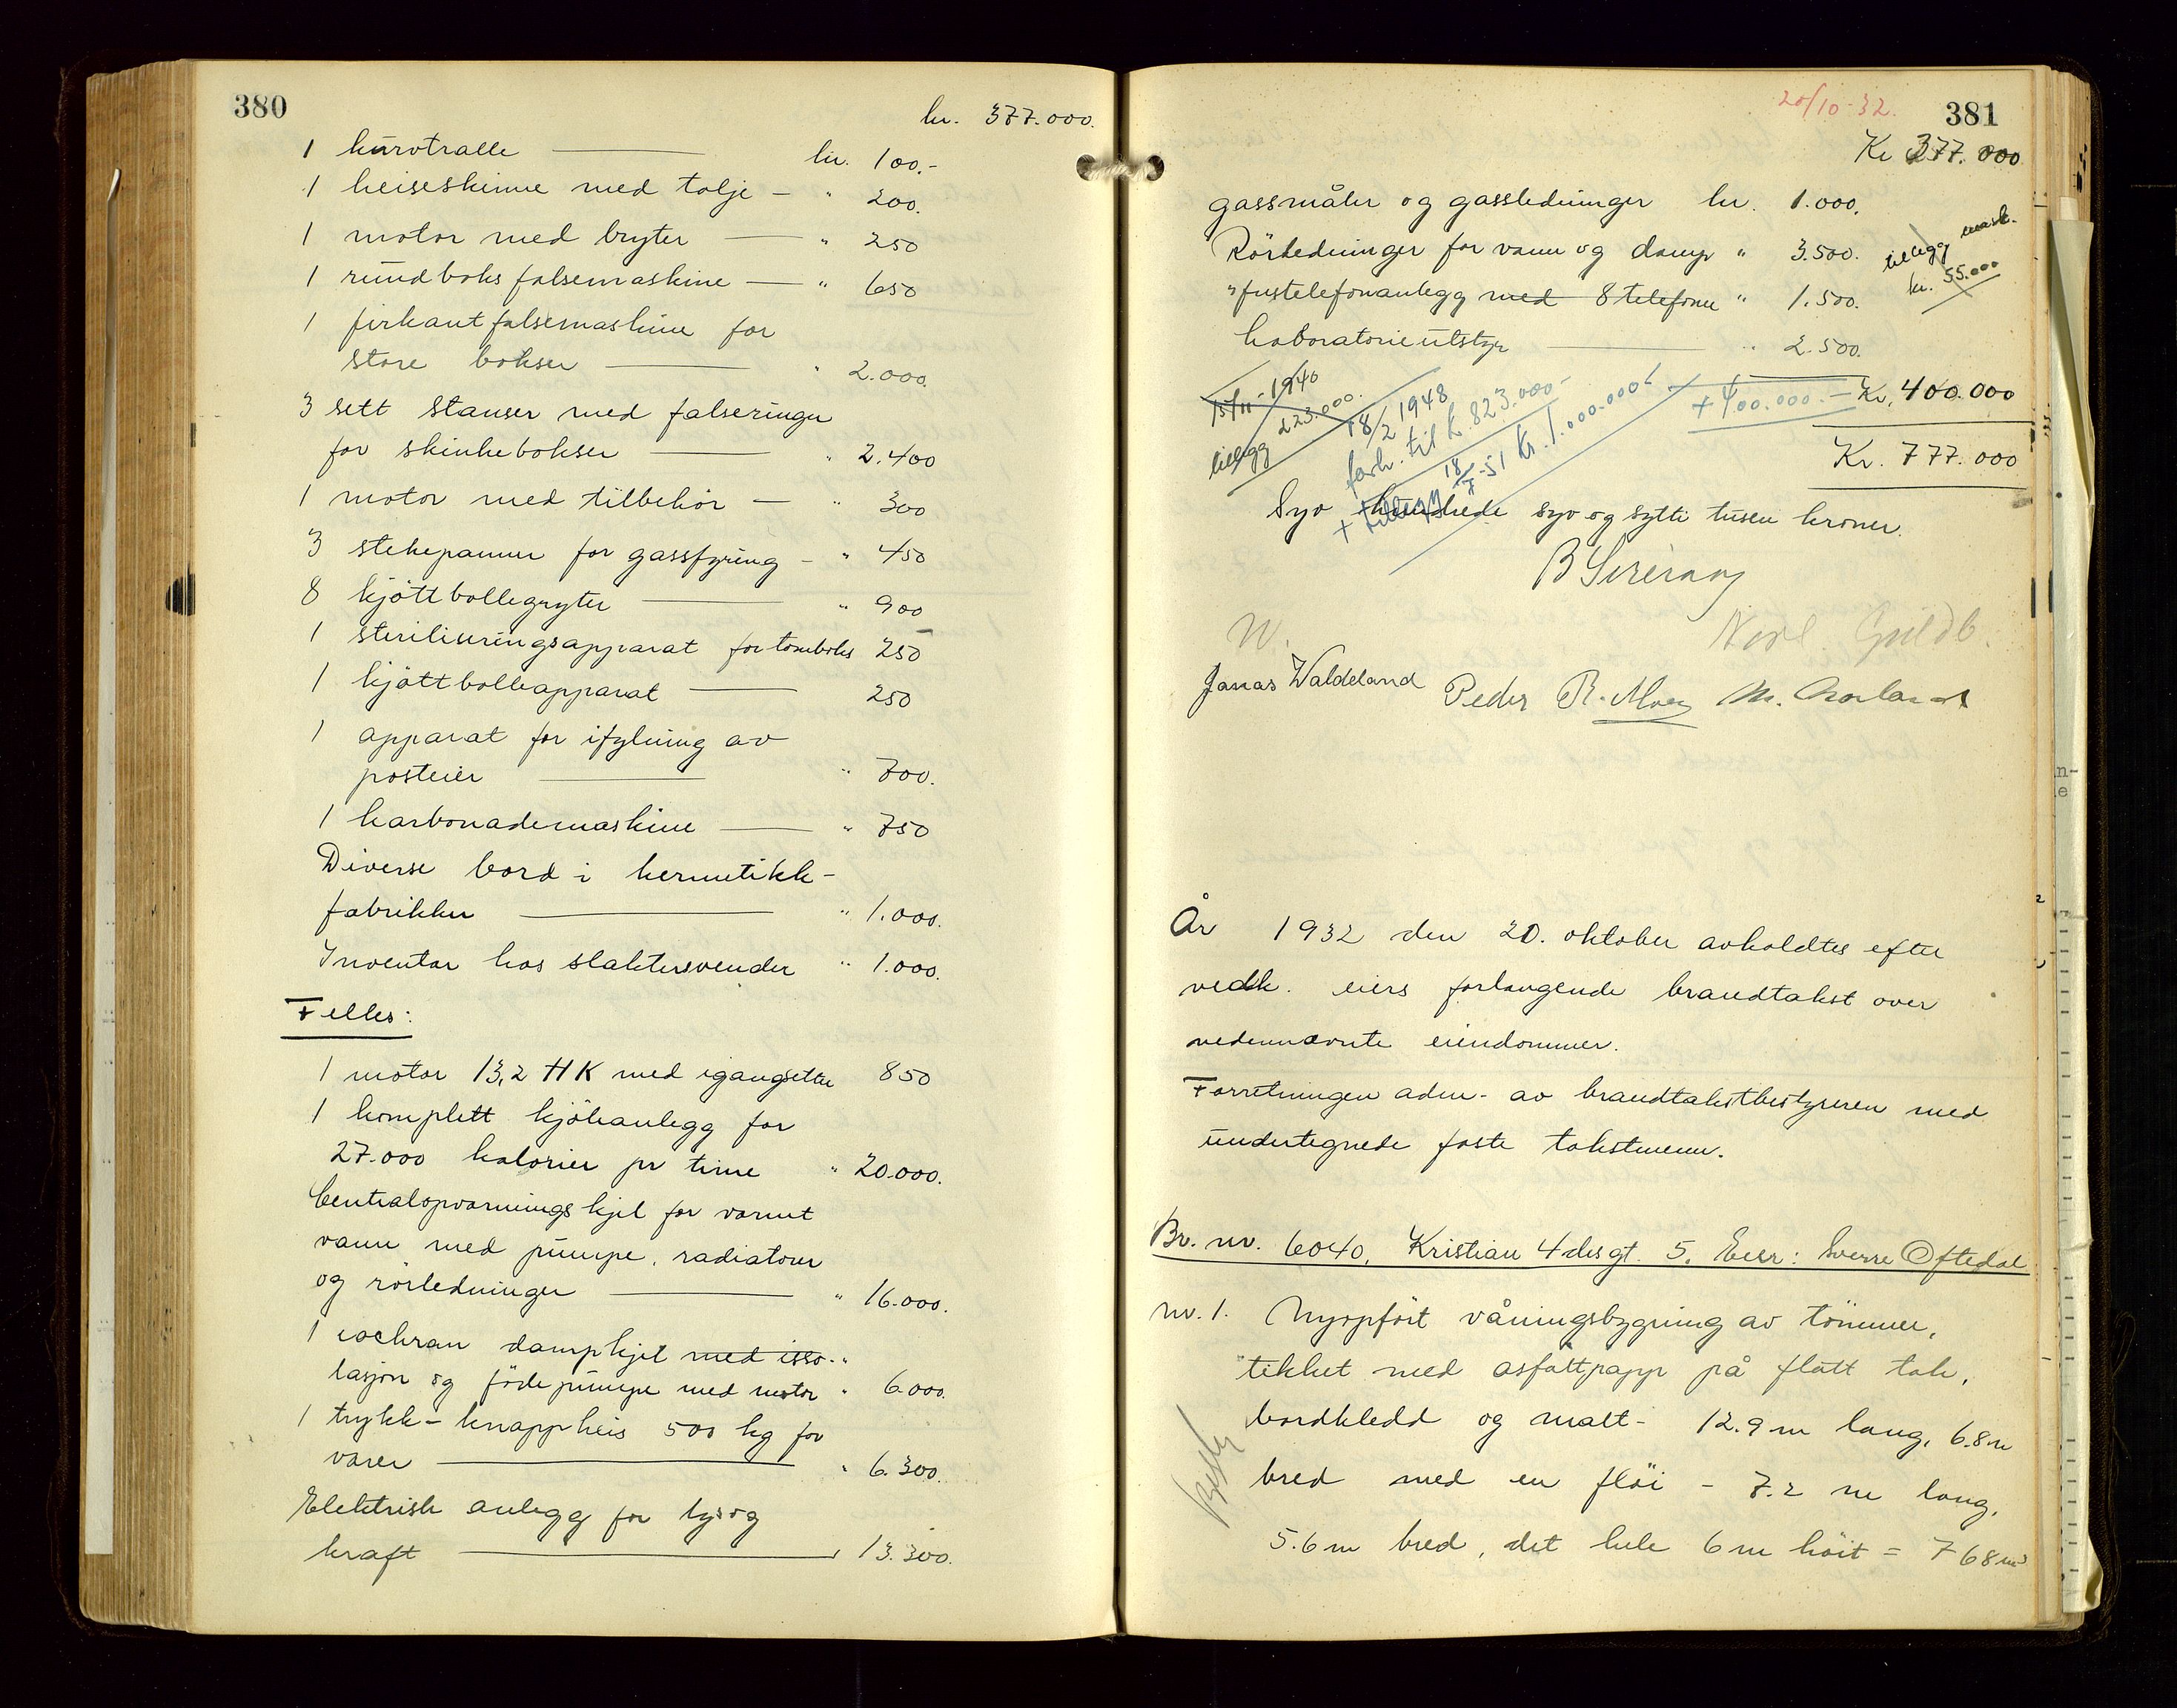 380
kr. 377.000.
1 kurvtralle — kr. 100.-
1 heiseskinne med talje — " 200.
1 motor med bryter — " 250
1 rundboks falsemaskine — " 650
1 firkantfalsemaskine for
store bokser — " 2.000.
3 sett stanser med falseringer
for skinkebokser — " 2.400
1 motor med tilbehör — " 300
3 stekepanner for gassfyring — " 450
8 kjöttbollegryter — " 900
1 steriliseringsapparat for tomboks 250
1 kjöttbolleapparat — 250
1 apparat for ifylning av
posteier — " 700.
1 karbonademaskine — " 750
Diverse bord i hermetikk-
fabrikken — " 1.000.
Inventar hos slaktersvender " 1.000.
Felles:
1 motor 13,2 HK med igangsetter 850
1 komplett kjöleanlegg for
27.000 kalorier pr time " 20.000.
Centralopvarmingskjel for varmt
vann med pumpe, radiatorer
og rörledninger — " 16.000.
1 cochran dampkjel med iso-
lasjon og födepumpe med motor " 6.000.
1 trykk-knappheis 500 kg for
varer — " 6.300.
Elektrisk anlegg for lys og
kraft — 13.300.
20/10-32.
381
Kr 377.000
gassmåler og gassledninger kr. 1.000.
Rörledninger for vann og damp " 3.500.
tillegg mask.
kr. 55.000
Hustelefonanlegg med 8 telefoner " 1.500.
Laboratorieutstyr — " 2.500.
Kr. 400.000
+ 400.000.-
15/11-1940
tillegg 223.000.
18/2 1948
forh. til k. 823.000-
+ tillegg 18/7-51 kr. 1.000.000
Kr. 777.000
Syv hundrede syv og sytti tusen kroner.
Jonas Waldeland Peder R. Moen
År 1932 den 20. oktober avholdtes efter
vedk. eiers forlangende brandtakst over
nedennævnte eiendommer.
Forretningen adm. av brandtakstbestyreren med
undertegnede faste takstmenn.
Br. nr. 6040, Kristian 4desgt. 5. Eier: Sverre Oftedal
nr. 1. Nyopfört våningsbygning av tömmer,
tekket med asfaltpapp på flatt tak,
bordkledd og malt - 12.9 m lang, 6.8 m
bred med en flöi - 7.2 m lang,
5.6 m bred, det hele 6 m höit = 768 m³